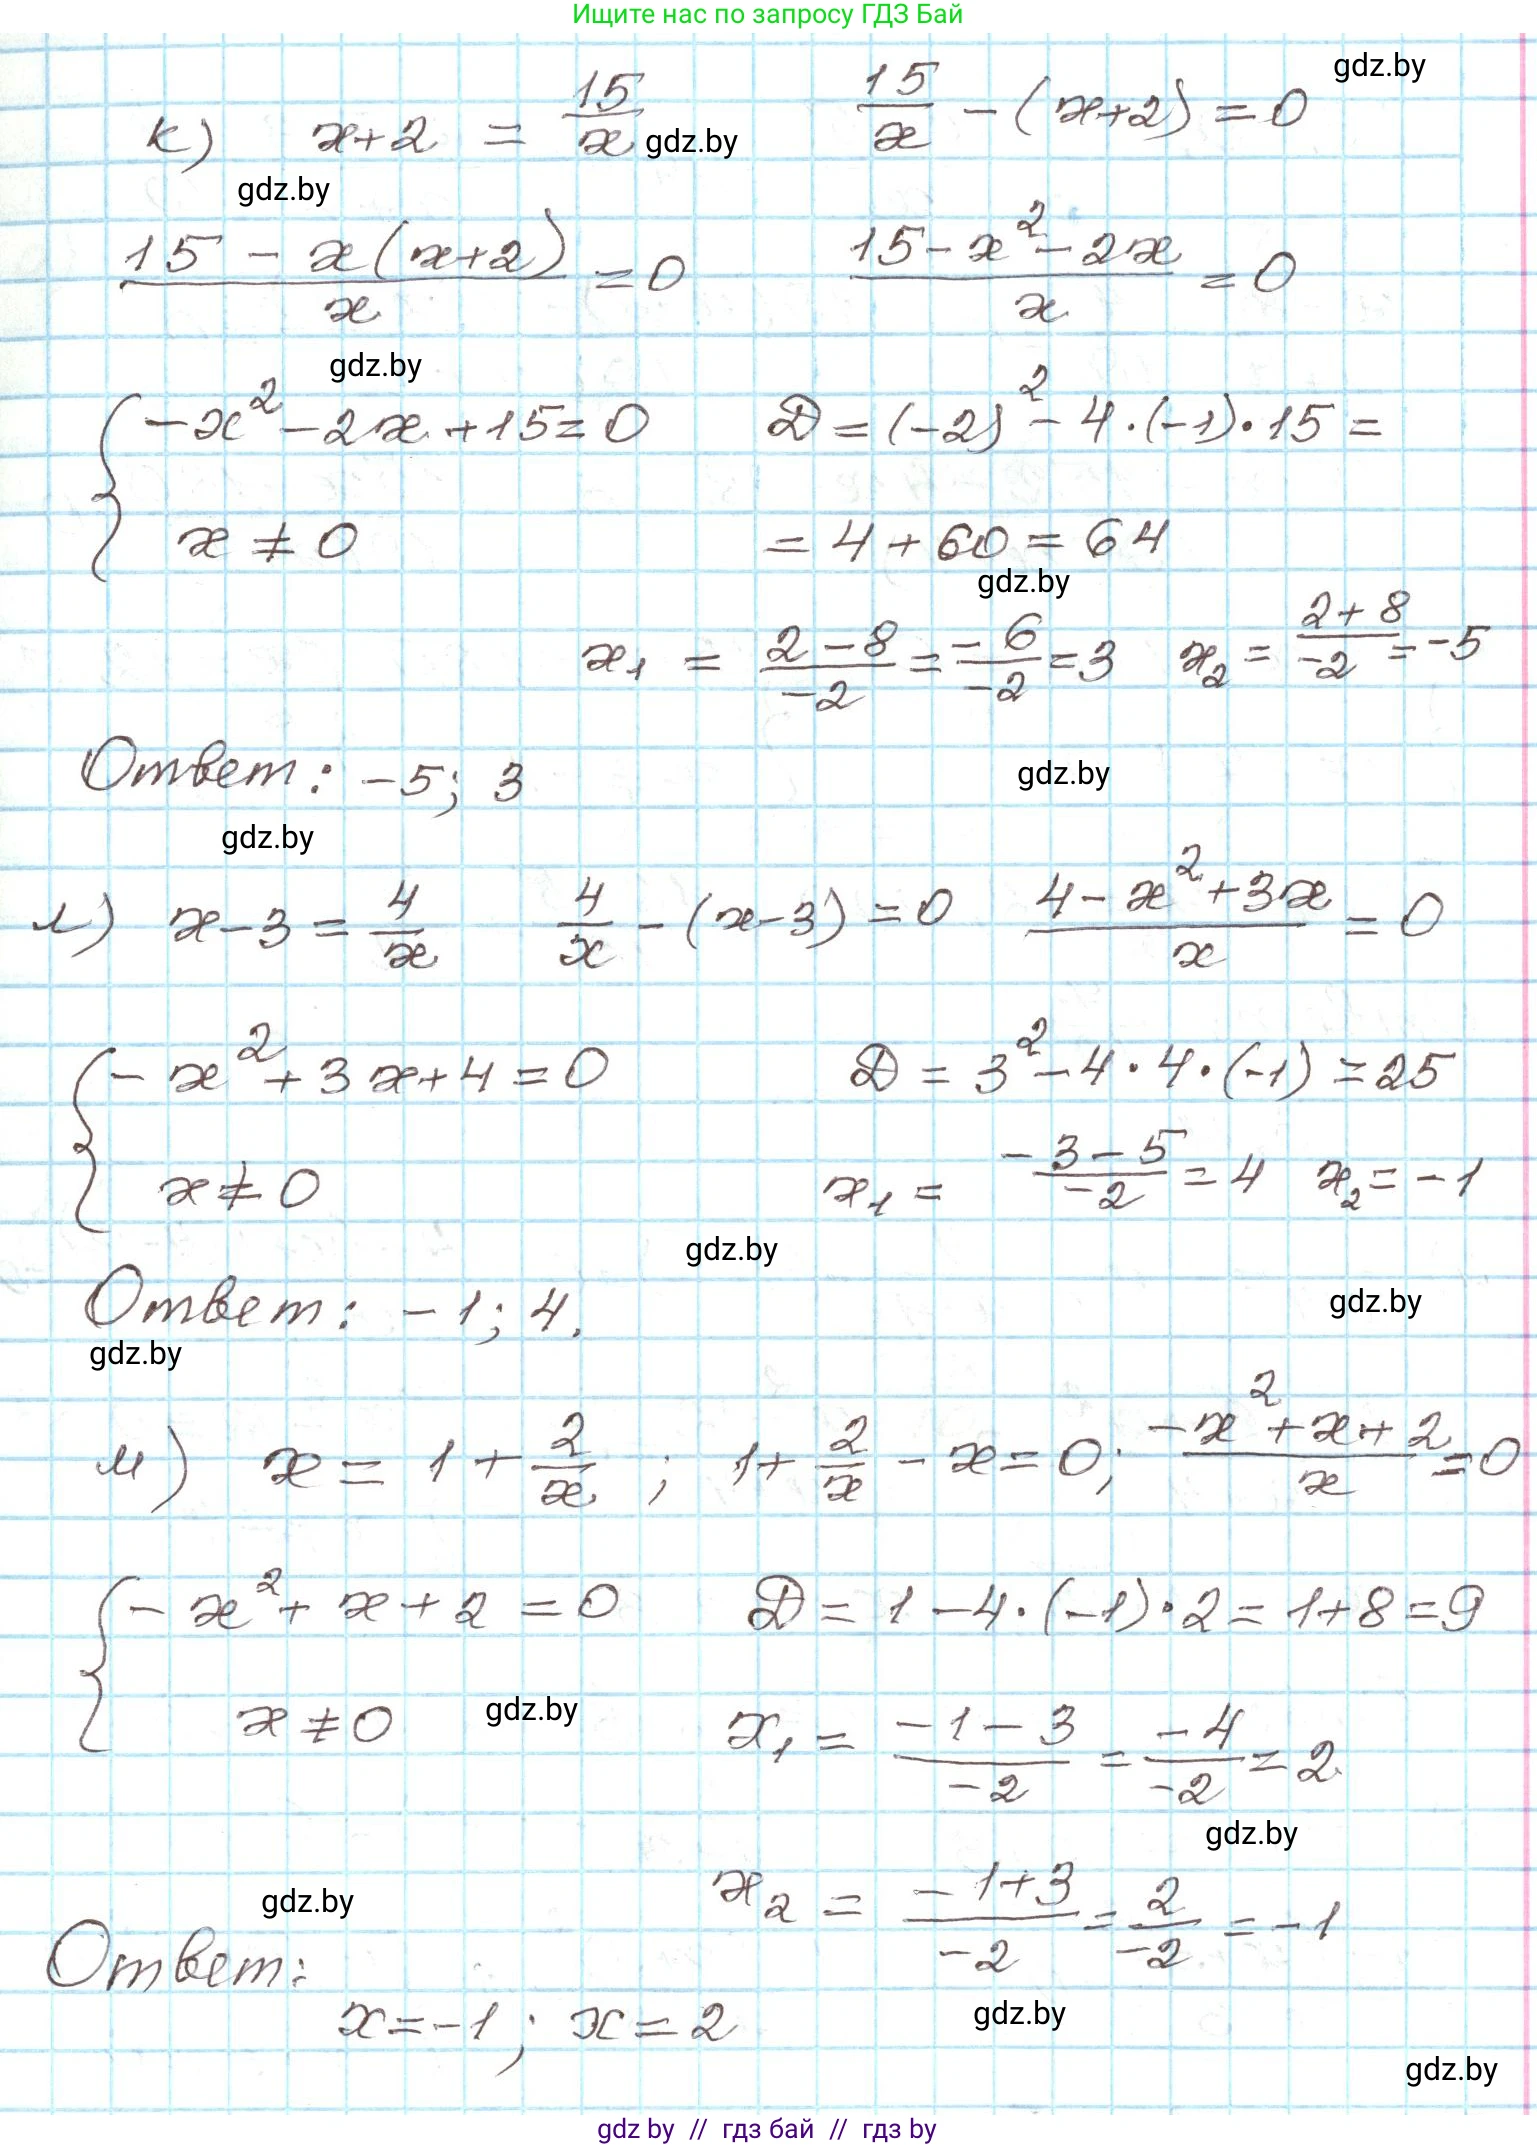 Ищите нас по запросу ГДЗ Бай
gdz.by
к) x+2 = 15/x gdz.by 15/x - (x+2) = 0
gdz.by
(15 - x(x+2))/x = 0 (15 - x² - 2x)/x = 0
gdz.by
{ -x² - 2x + 15 = 0 D = (-2)² - 4·(-1)·15 =
x ≠ 0 = 4 + 60 = 64
gdz.by
x₁ = (2-8)/-2 = -6/-2 = 3 x₂ = (2+8)/-2 = -5
Ответ: -5; 3 gdz.by
gdz.by
л) x-3 = 4/x 4/x - (x-3) = 0 (4 - x² + 3x)/x = 0
{ -x² + 3x + 4 = 0 D = 3² - 4·4·(-1) = 25
x ≠ 0 x₁ = (-3-5)/-2 = 4 x₂ = -1
gdz.by
Ответ: -1; 4. gdz.by
gdz.by
м) x = 1 + 2/x ; 1 + 2/x - x = 0; (-x² + x + 2)/x = 0
{ -x² + x + 2 = 0 D = 1 - 4·(-1)·2 = 1+8 = 9
x ≠ 0 gdz.by x₁ = (-1-3)/-2 = -4/-2 = 2
gdz.by
gdz.by x₂ = (-1+3)/-2 = 2/-2 = -1
Ответ:
x = -1; x = 2 gdz.by
gdz.by
gdz by // гдз бай // гдз by